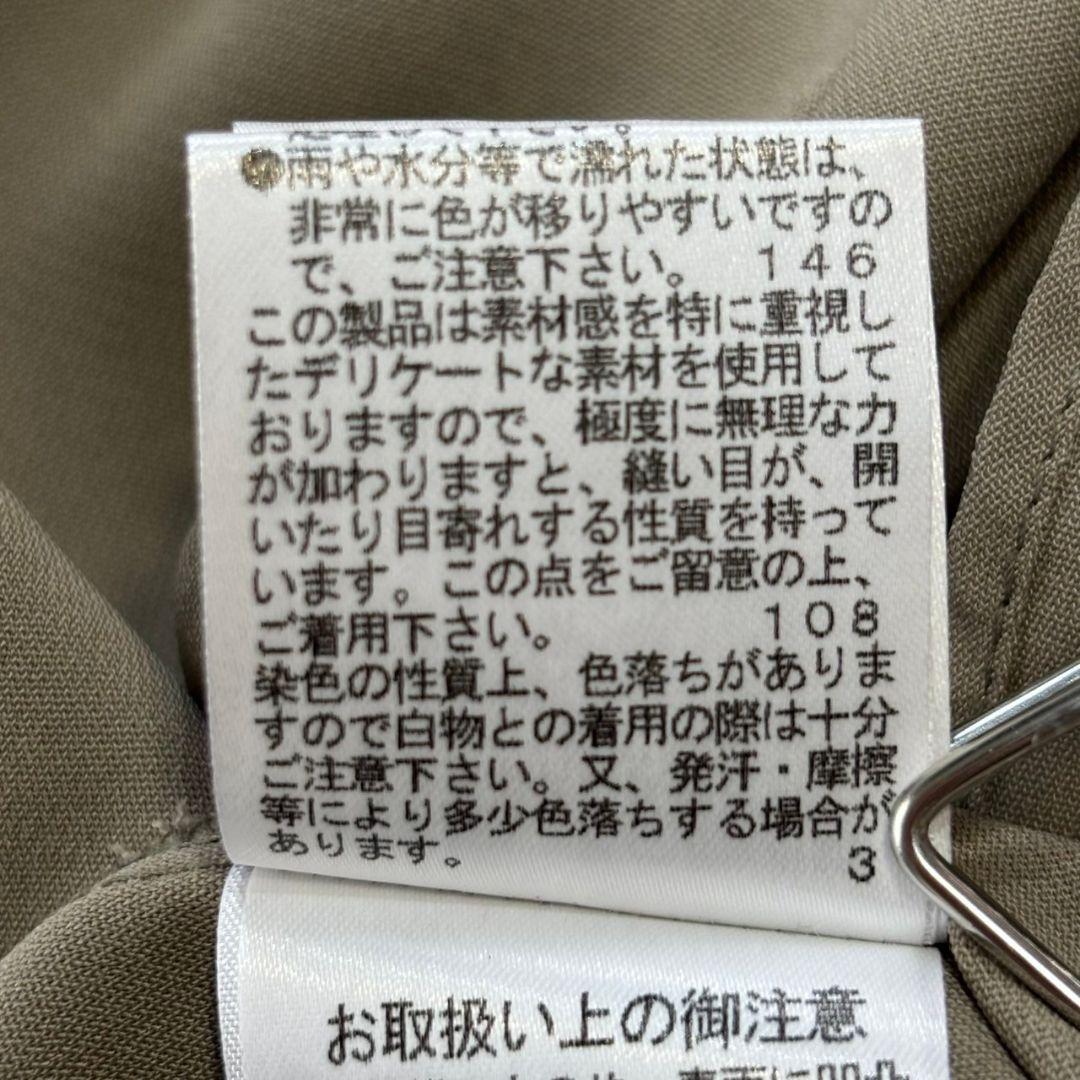 下さい。
●雨や水分等で濡れた状態は、
非常に色が移りやすいですの
で、ご注意下さい。 146
この製品は素材感を特に重視し
たデリケートな素材を使用して
おりますので、極度に無理な力
が加わりますと、縫い目が、開
いたり目寄れする性質を持って
います。この点をご留意の上、
ご着用下さい。 108
染色の性質上、色落ちがありま
すので白物との着用の際は十分
ご注意下さい。又、発汗・摩擦
等により多少色落ちする場合が
あります。 3
お取扱い上の御注意